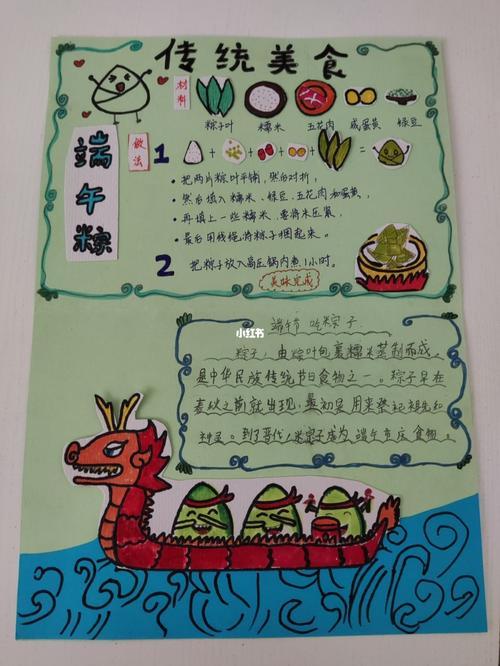 传统美食
材料
粽子叶 糯米 五花肉 咸蛋黄 绿豆
端午粽
做法
1
+ + + + =
• 把两片粽叶平铺,然后对折,
• 然后填入糯米、绿豆、五花肉和蛋黄,
• 再填上一些糯米,要将米压紧,
• 最后用线绳将粽子捆起来。
2 把粽子放入高压锅内煮1小时。
美味完成
小红书
端午节 吃粽子
粽子,由粽叶包裹糯米蒸制而成,
是中华民族传统节日食物之一。粽子早在
春秋之前就出现,最初是用来祭祀祖先和
神灵。到了晋代,粽子成为端午节庆食物。